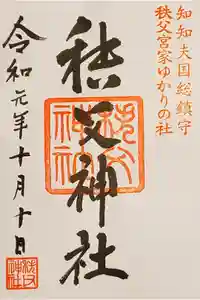 知知夫国総鎮守
秩父宮家ゆかりの社
秩父神社
秩父神社
令和元年十月十日
秩父神社